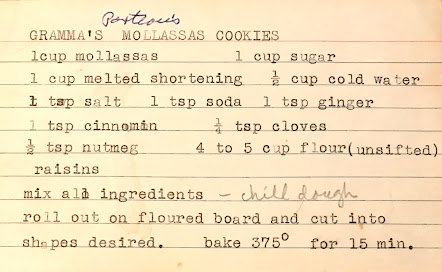 Porteous
GRAMMA'S MOLLASSAS COOKIES
1cup mollassas 1 cup sugar
1 cup melted shortening ½ cup cold water
1 tsp salt 1 tsp soda 1 tsp ginger
1 tsp cinnomin ¼ tsp cloves
½ tsp nutmeg 4 to 5 cup flour(unsifted)
raisins
mix all ingredients - chill dough
roll out on floured board and cut into
shapes desired. bake 375⁰ for 15 min.